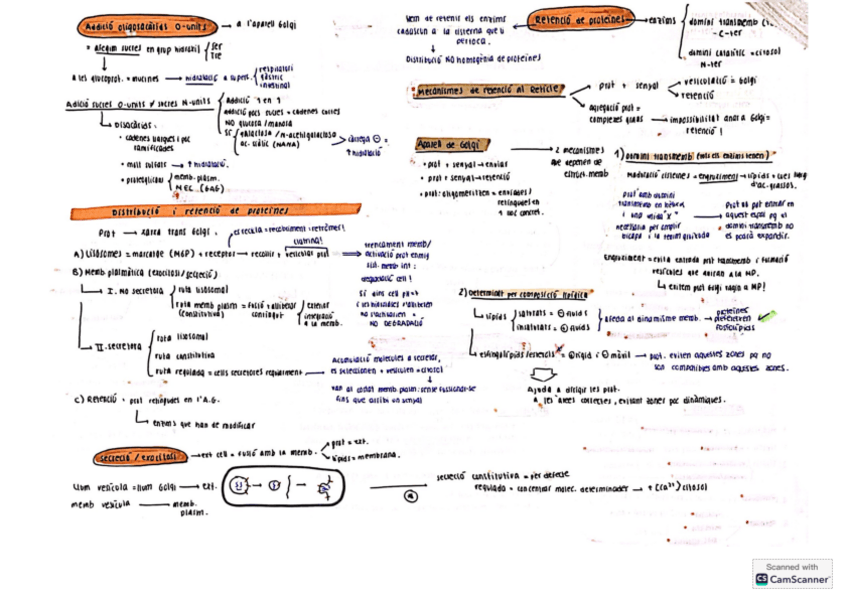 Addició oligosacàrids O-units → a l'aparell Golgi
= afegim sucres en grup hidroxil { Ser
Tre
A les glucoprot. = mucines → hidratació a superf. { respiratori
gàstric
intestinal
Addició sucres O-units ≠ sucres N-units { Addició 1 en 1
addició pocs sucres = cadenes curtes
NO glucosa/manosa
SÍ { galactosa / N-acetilgalactosa
ac. siàlic (NANA) → càrrega ⊖ =
↑ hidratació
Disacàrids:
• cadenes llargues i poc
ramificades
• molt sulfats → ↑ hidratació.
• proteoglicans { memb. plasm.
MEC (GAG)
Distribució i retenció de proteïnes
Prot → xarxa trans Golgi.
A) Lisosomes = marcatge (M6P) + receptor → recollir + vesícules prot
clatrina!
trencament memb/
activació prot enmig
degradació cèl!
Si dins cèl
NO DEGRADACIÓ
B) Memb plasmàtica (exocitosi/secreció)
I. No secretora { ruta lisosomal
ruta memb plasm = fusió + alliberar
(constitutiva) contingut { exterior
integració
a la memb.
II. secretora { ruta lisosomal
ruta constitutiva
ruta regulada = cèls secretores requeriment →
Acumulació molècules a secretar,
es seleccionen + vesícules = citosol
van al costat memb plasm. sense fusionar-se
fins que arribi un senyal
C) Retenció = prot retingudes en l'A.G.
→ enzims que han de modificar
Secreció / exocitosi → ext cèl = fusió amb la memb. { prot = ext.
lípids = membrana.
Llum vesícula = llum Golgi → ext.
memb vesícula → memb.
plasm.
secreció constitutiva = per defecte
regulada = concentrar molec. determinades → ↑ [Ca²⁺] citosol
Retenció de proteïnes → enzims { domini transmemb
- C-ter
domini catalític = citosol
N-ter
Hem de retenir els enzims
cadascun a la cisterna que li
pertoca.
Distribució NO homogènia de proteïnes
Mecanismes de retenció al Reticle
prot + senyal → vesiculació = Golgi
→ retenció
agregació prot =
complexes grans → impossibilitat anar a Golgi =
retenció!
Aparell de Golgi → 2 mecanismes
que depenen de
estruct. memb
• prot + senyal → enviar
• prot + senyal → retenció
• prot: oligomeritzen = enviades/
retingudes en
1 lloc concret.
1) Domini transmemb (tots els enzims tenen)
Maduració cisternes = engruiximent → lípids + cues llarg
d'ac. grassos.
Prot amb domini
necessària per omplir
Prot no pot entrar en
aquest espai pq el
domini transmemb no
es podrà expandir.
Engruiximent = evita entrada prot transmemb i formació
vesícules que aniran a la MP.
→ evitem prot Golgi vagin a MP!
2) Determinat per composició lipídica
→ lípids { saturats = ⊖ fluids
insaturats = ⊕ fluids } afecta al dinamisme memb. → proteïnes
prefereixen
fosfolípids
→ esfingolípids/esterols = ⊕ rígid i ⊖ mòbil → prot. eviten aquestes zones pq no
són compatibles amb aquestes zones.
Ajuda a dirigir les prot.
A les àrees correctes, evitant zones poc dinàmiques.
Scanned with
CS CamScanner